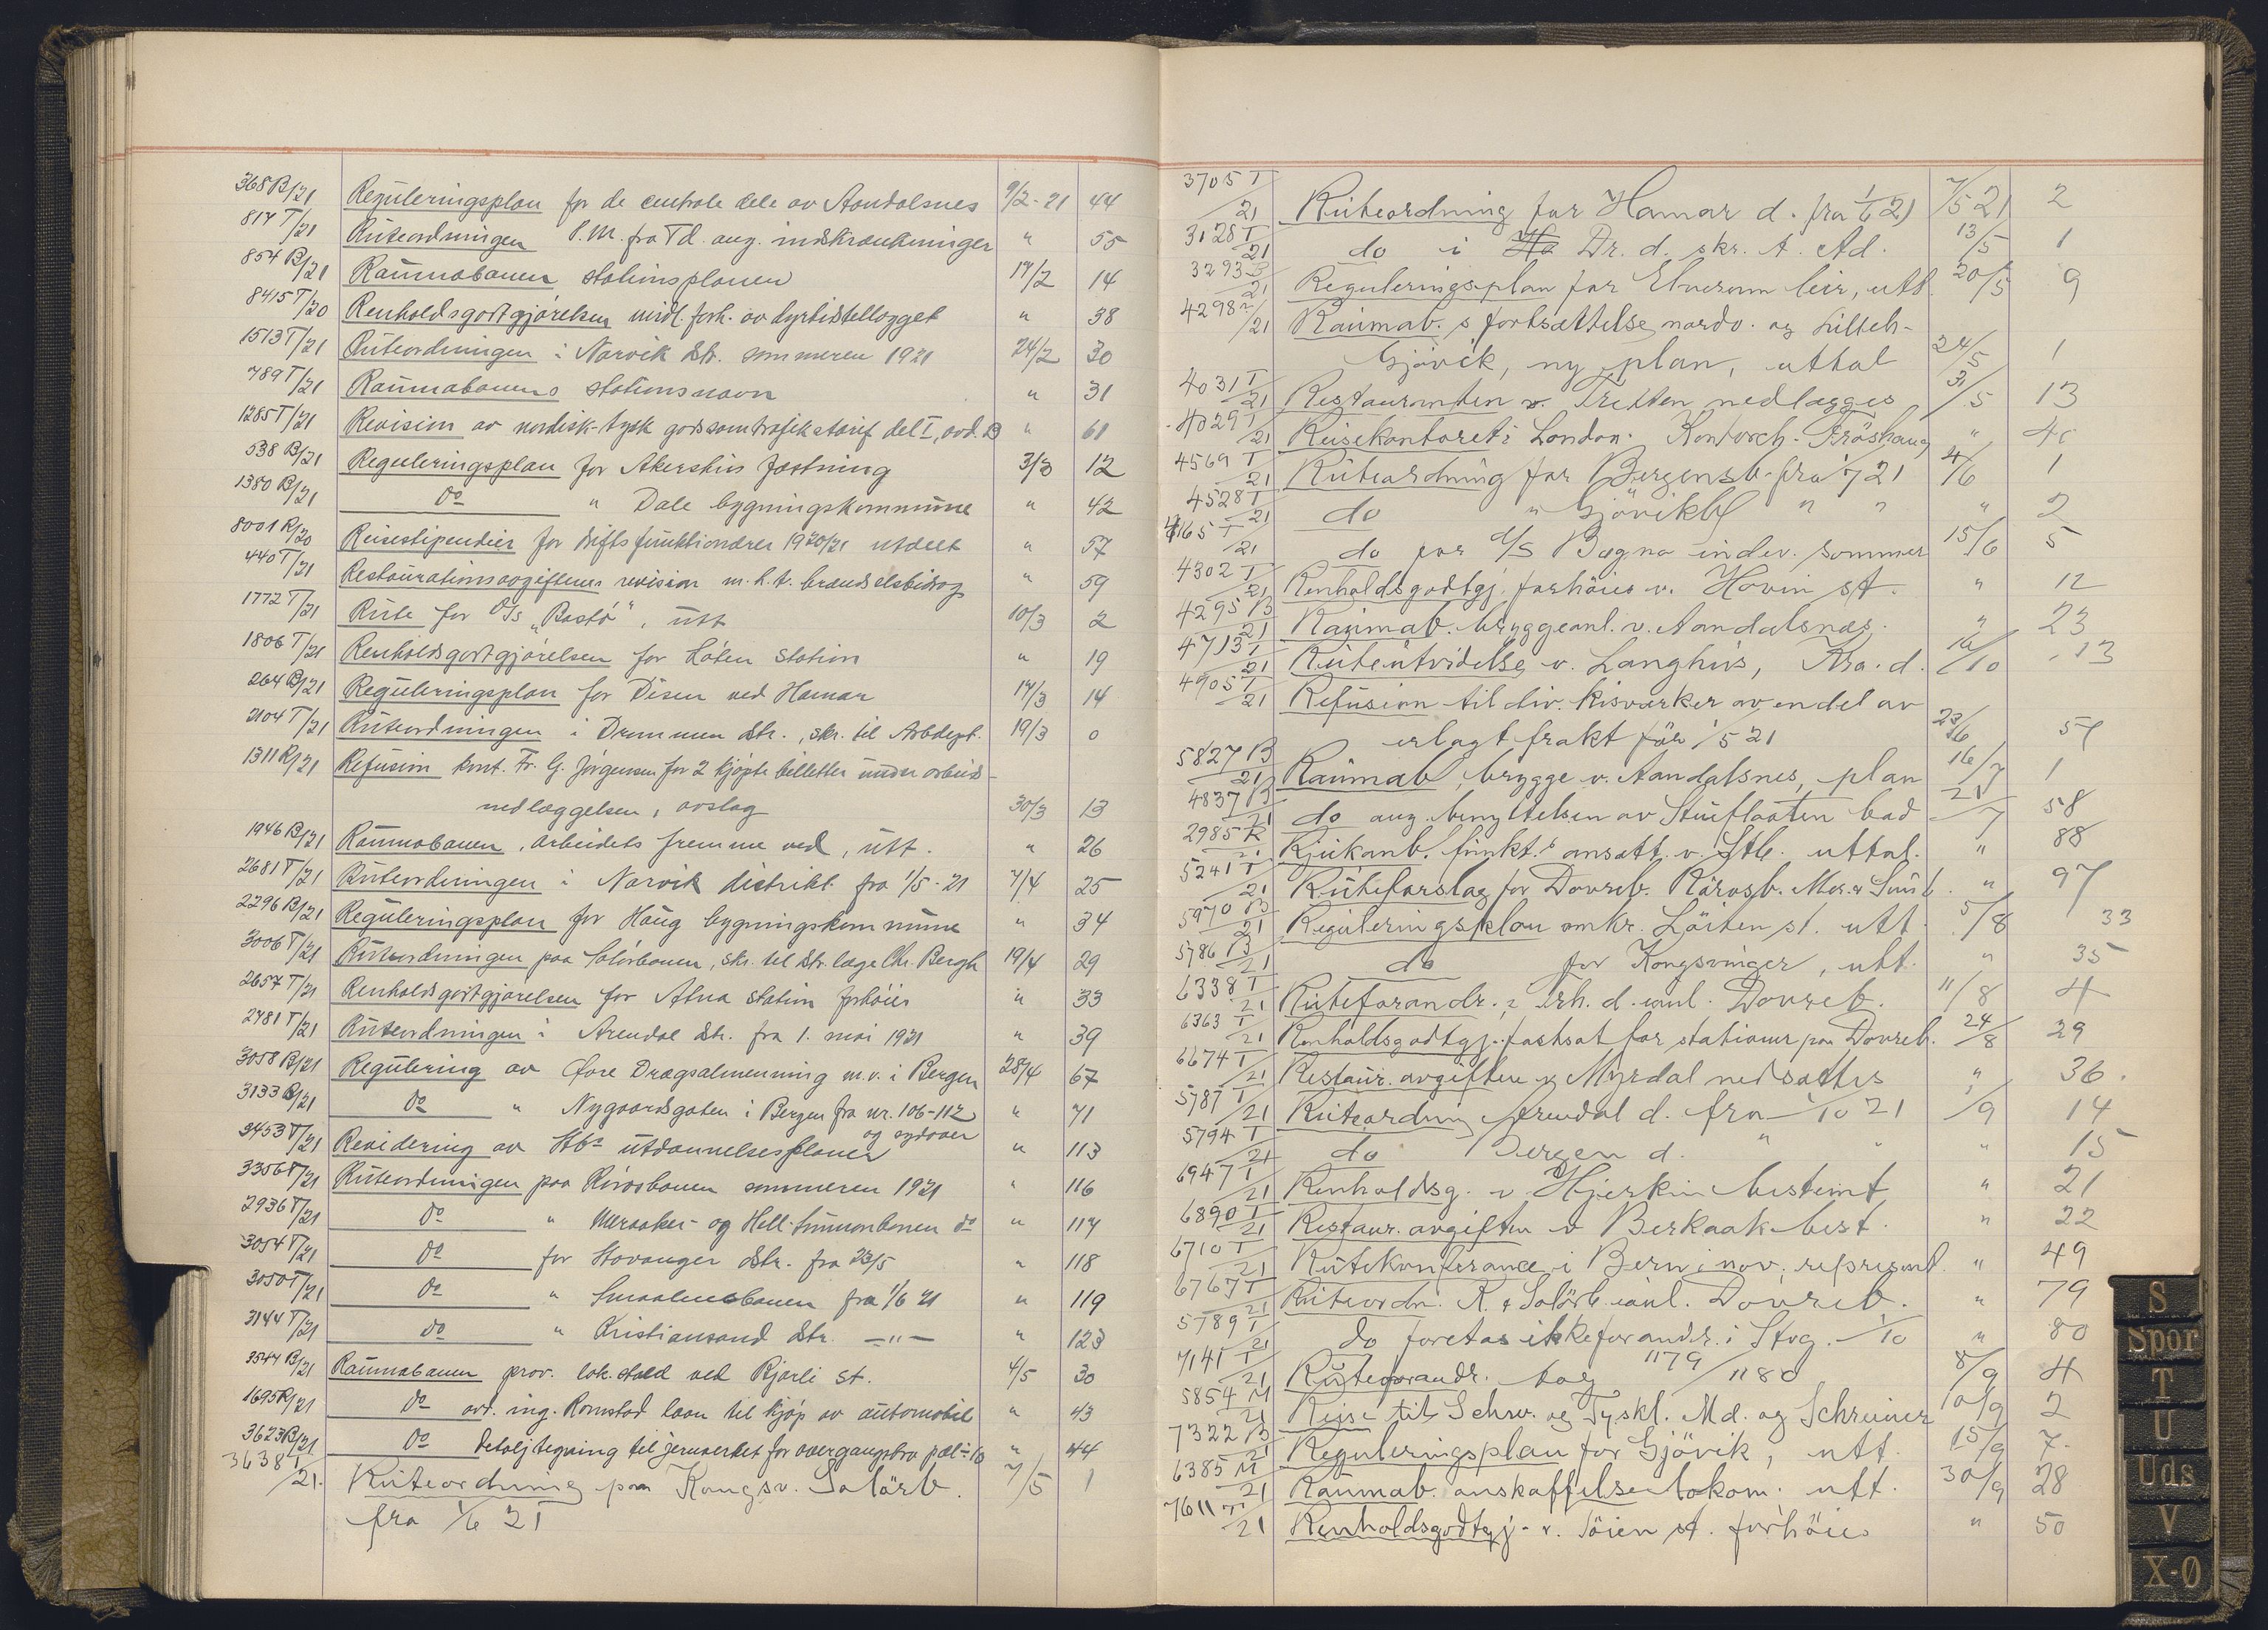 368 B/21 Reguleringsplan for de centrale dele av Aandalsnes 9/2-21 44
817 T/21 Ruteordningen P.M. fra Td. ang. indskrænkninger " 55
854 B/21 Raumabanen stationsplanen 17/2 14
8415 T/20 Renholdsgodtgjørelsen midl. forh. av dyrtidstillægget " 38
1513 T/21 Ruteordningen i Narvik dstr. sommeren 1921 24/2 30
789 T/21 Raumabanens stationsnavn " 31
1285 T/21 Revision av nordisk-tysk godssamtrafiktarif del I, avd. B " 61
538 B/21 Reguleringsplan for Akershus fæstning 3/3 12
1380 B/21 do " Dale bygningskommune " 42
8001 R/20 Reisestipendier for driftsfunktionærer 1920/21 utdelt " 57
440 T/21 Restaurationsavgiftens revision m.h.t. brændselsbidrag " 59
1772 T/21 Rute for D/s „Bastø", utt 10/3 2
1806 T/21 Renholdsgodtgjørelsen for Løten station " 19
264 B/21 Reguleringsplan for Disen ved Hamar 17/3 14
2104 T/21 Ruteordningen i Drammen dstr., skr. til Arbdept. 19/3 0
1311 R/21 Refusion kont. Fr. G. Jørgensen for 2 kjøpte billetter under arbeids-
nedlæggelsen, avslag 30/3 13
1946 B/21 Raumabanen, arbeidets fremme ved, utt. " 26
2681 T/21 Ruteordningen i Narvik distrikt fra 1/5-21 7/4 25
2296 B/21 Reguleringsplan for Haug bygningskommune " 34
3006 T/21 Ruteordningen paa Solørbanen, skr. til dstr. læge Chr. Bergh 19/4 29
2657 T/21 Renholdsgodtgjørelsen for Atna station forhøies " 33
2781 T/21 Ruteordningen i Arendal dstr. fra 1. mai 1921 " 39
3058 B/21 Regulering av Øvre Dragsalmenning m.v. i Bergen 28/4 67
3133 B/21 do " Nygaardsgaten i Bergen fra nr. 106-112 " 71
og sydover
2453 T/21 Revidering av Stbs utdannelsesplaner " 113
3356 T/21 Ruteordningen paa Rørosbanen sommeren 1921 " 116
2936 T/21 do " Meraaker- og Hell-Sunnanbanen do " 117
3054 T/21 do for Stavanger dstr. fra 23/5 " 118
3050 T/21 do " Smaalensbanen fra 1/6 21 " 119
3144 T/21 do " Kristiansand dstr. —"— " 123
3544 B/21 Raumabanen prov. lok. stald ved Bjorli st. 4/5 30
1695 R/21 do avd. ing. Romstad laan til kjøp av automobil " 43
3623 B/21 do Detaljtegning til jernverket for overgangsbro pæl 10 " 44
3638 T/21. Ruteordning paa Kongsv. Solörb. 7/5 1
fra 1/6 21
3705 T/21 Ruteordning for Hamar d. fra 1/6 21 7/5 21 2
3128 T/21 do i Ha Dr. d. skr. t. Ad. 13/5 1
3293 B/21 Reguleringsplan for Elverum leir, utt 20/5 9
4298 /21 Raumab. s fortsættelse nordv. og Lilleh-
Gjövik, ny plan, uttal 24/5 1
4031 T/21 Restauranten v. Tretten nedlægges 31/5 13
4029 T/21 Reisekontoret i London. Kontorch. Fröshaug "
4569 T/21 Ruteordning for Bergensb. fra 1/7 21 4/6 1
4528 T/21 do " Gjövikb " " " 2
4165 T/21 do for D/S Bagna indev. sommer 15/6 5
4302 T/21 Renholdsgodtgj. forhöies v. Hovin st. " 12
4295 B/21 Raumab. bryggeanl. v. Aandalsnes. " 23
4713 T/21 Ruteutvidelse v. Langhus, Kra. d. 16/10 13
4905 T/21 Refusion til div. kisværker av en del av
erlagt frakt för 1/5 21 23/6 54
5827 B/21 Raumab, brygge v. Aandalsnes, plan 16/7 1
4837 B/21 do ang. benyttelsen av Stuflaaten bad 21/7 58
2985 R/21 Rjukanb. funkt.s ansætt. v. Stb. uttal. " 88
5241 T/21 Ruteforslag for Dovreb. Rörosb. Mer. & Sunb. " 97
5970 B/21 Reguleringsplan omkr. Löiten st. utt. 5/8 33
5786 B/21 do for Kongsvinger, utt. " 35
6338 T/21 Ruteforandr. i Trh. d. anl. Dovreb. 11/8 4
6363 T/21 Renholdsgodtgj. fastsat for stationer paa Dovreb. 24/8 29
6674 T/21 Restaur. avgiften v. Myrdal nedsættes " 36.
5787 T/21 Ruteordning Arendal d. fra 1/10 21 /9 14
5794 T/21 do Bergen d. " " " 15
6947 T/21 Renholdsg. v. Hjerkin bestemt " 21
6890 T/21 Restaur. avgiften v Berkaak best. " 22
6710 T/21 Rutekonferance i Bern i nov. represent. " 49
6767 T/21 Ruteordn. K. & Solörb. anl. Dovreb. " 79
5789 T/21 do foretas ikke forandr. i Stvg. 1/10 " 80
7141 T/21 Ruteforandr. tog 1179/1180 8/9 4
5854 M/21 Reise til Schw. og Tyskl. Md. og Schreiner 10/9 2
7322 B/21 Reguleringsplan for Gjövik, utt. 15/9 7.
6385 M/21 Raumab. anskaffelse lokom. utt. 30/9 28
7611 T/21 Renholdsgodtgj. v. Söien st. forhöies " 50
S
Spor
T
U
Uds
V
X-Ø